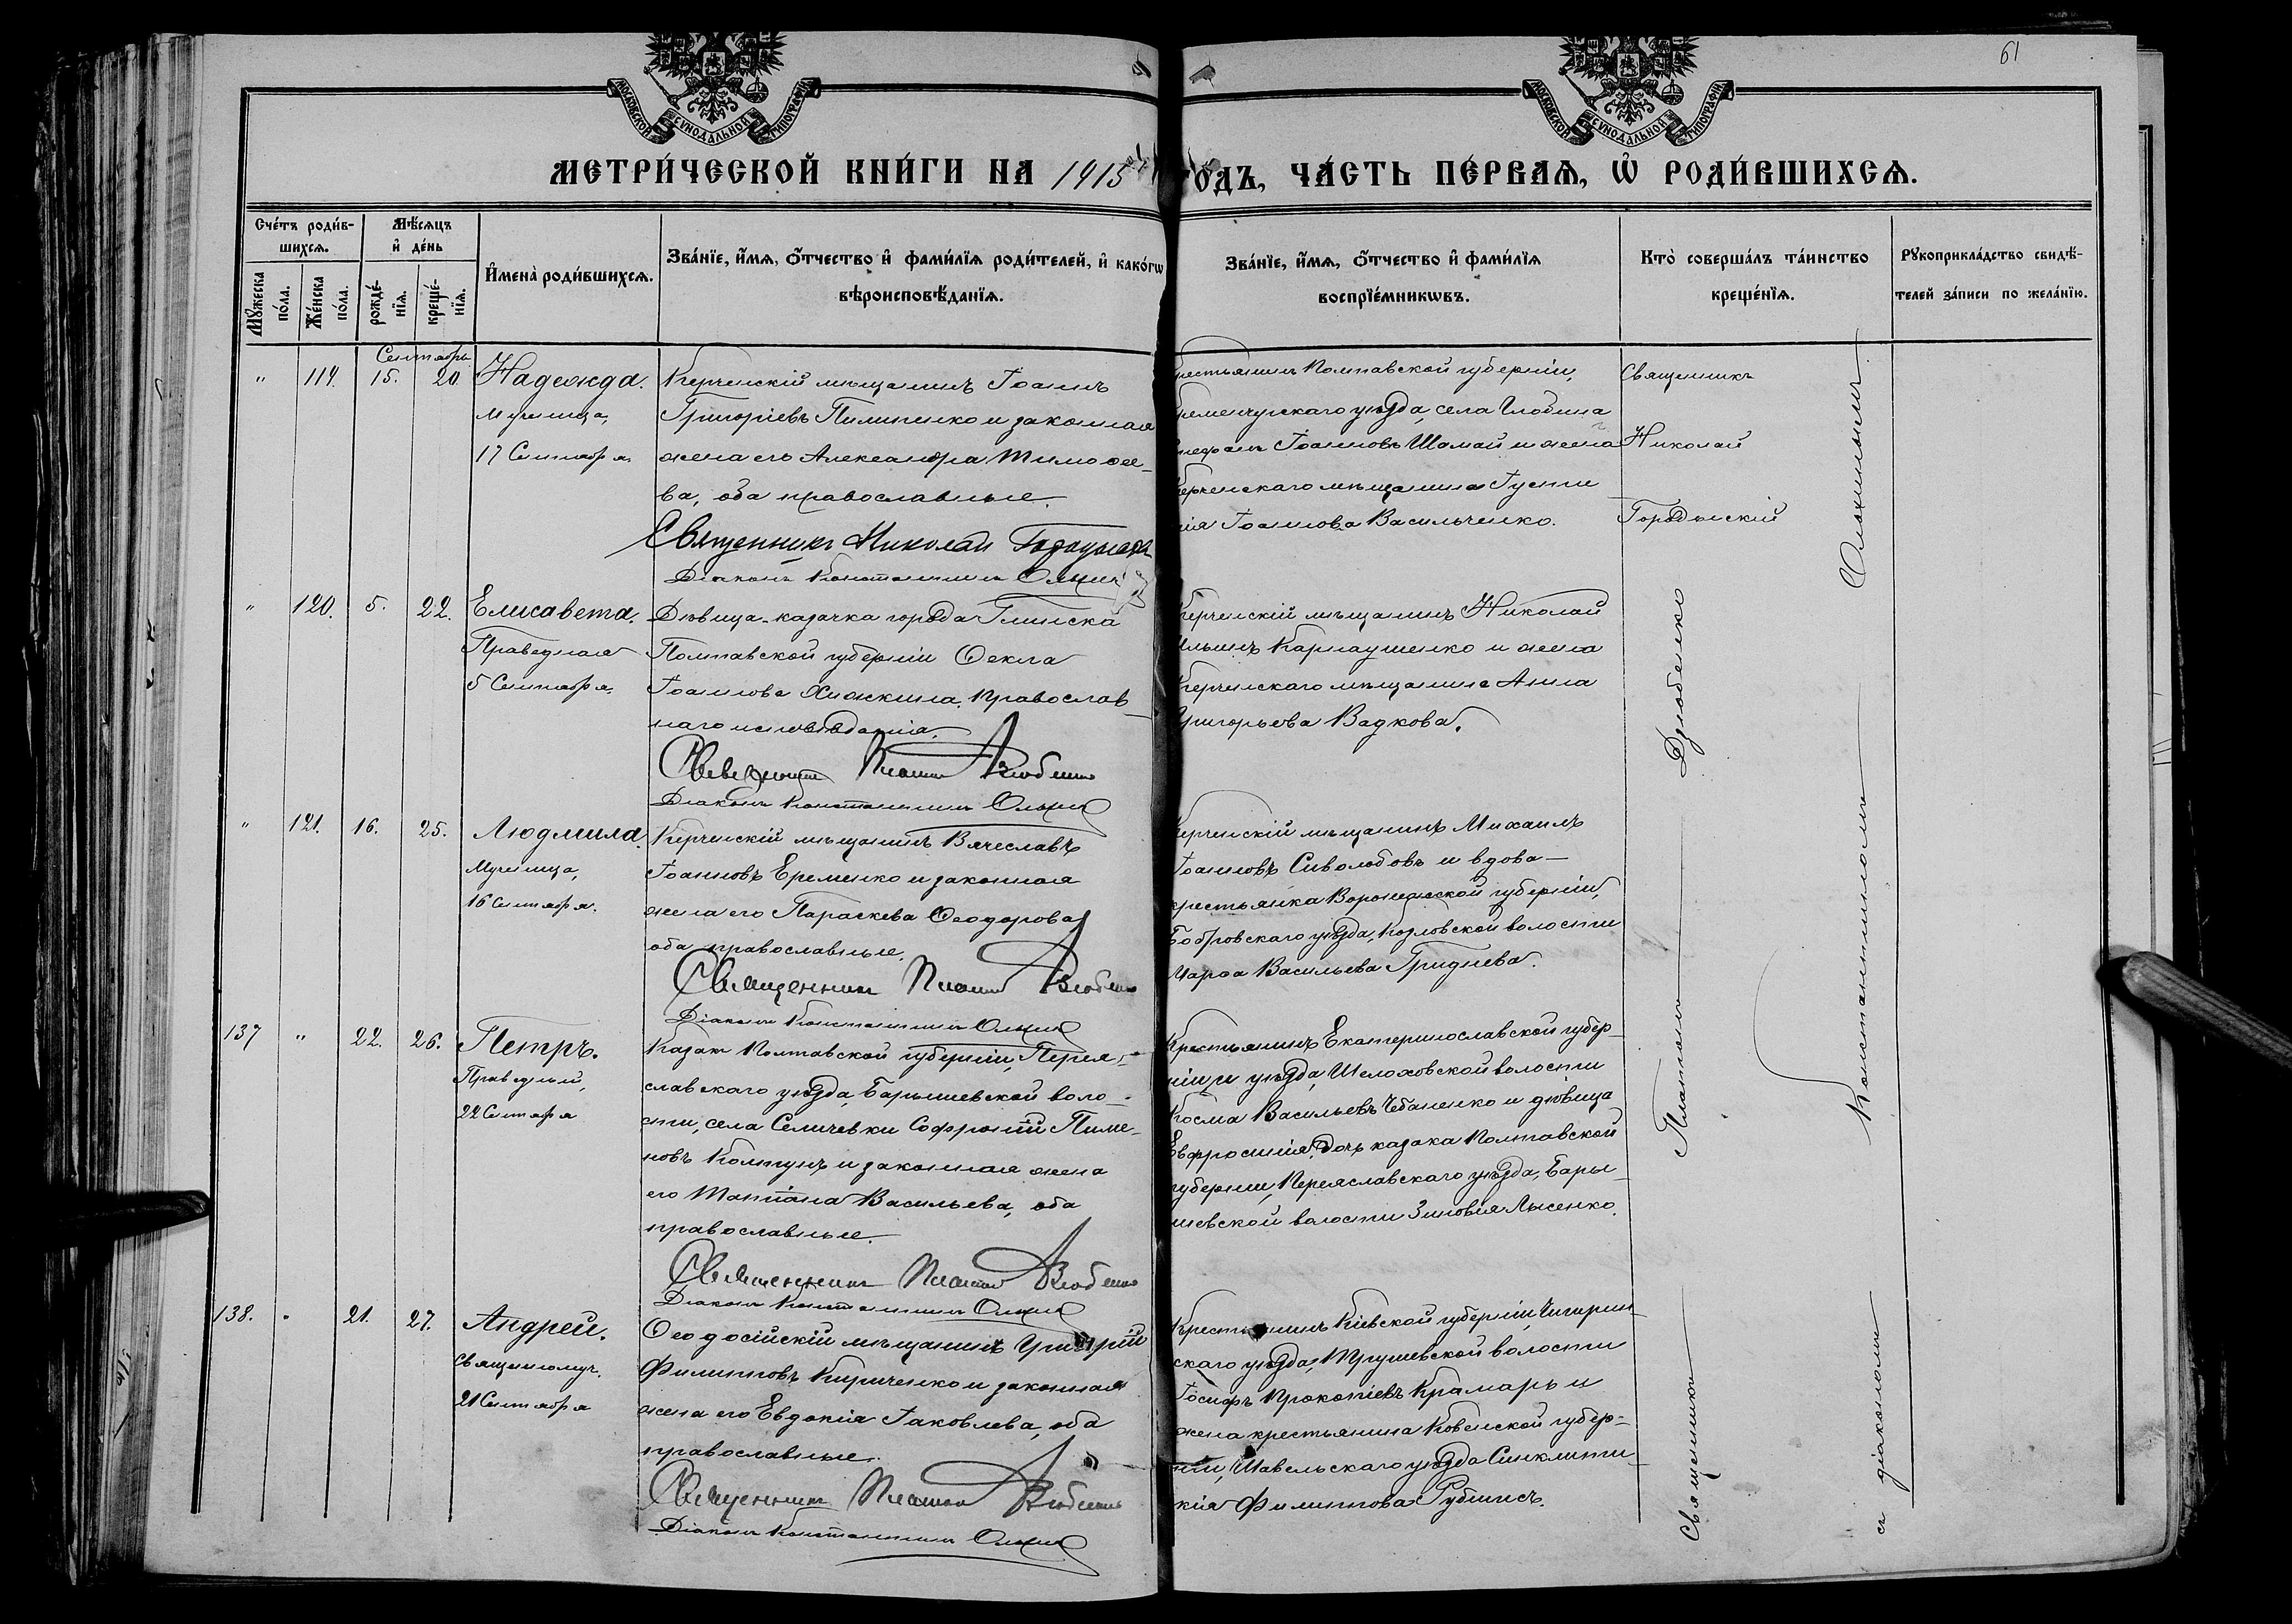 61
МОСКОВСКОЙ СѴНОДАЛЬНОЙ ТИПОГРАФІИ
МОСКОВСКОЙ СѴНОДАЛЬНОЙ ТИПОГРАФІИ
МЕТРИ́ЧЕСКОЙ КНИ́ГИ НА 1915 ГО́ДЪ, ЧА́СТЬ ПЕ́РВАЯ, Ѡ҆ РОДИ́ВШИХСЯ.
Сче́тъ роди́в-
шихсѧ.
Мꙋ́жеска по́ла.
Же́нска по́ла.
Мѣ́сѧцъ
и҆ де́нь
рожде́-
нїѧ.
креще́-
нїѧ.
И҆мена̀ роди́вшихсѧ.
Зва́нїе, и҆́мѧ, ѻ҆́тчество и҆ фами́лїѧ роди́телей, и҆ како́гѡ
вѣроисповѣ́данїѧ.
Зва́нїе, и҆́мѧ, ѻ҆́тчество и҆ фами́лїѧ
воспрїе́мникѡвъ.
Кто̀ соверша́лъ та́инство
креще́нїѧ.
Рꙋкоприкла́дство свидѣ́-
телей за́писи по жела́нїю.
Сентябрь
" 119. 15. 20. Надежда.
Мученица,
17 Сентября.
Керченскій мѣщанинъ Іоаннъ
Григоріевъ Пилипенко и законная
жена его Александра Тимофее-
ва, оба православные.
Священникъ Николай
Діаконъ Константинъ
рестьянинъ Полтавской губерніи,
ременчугскаго уѣзда, села Глобина
тефанъ Іоанновъ Шамай и жена
ерченскаго мѣщанина
нія Іоаннова Васильченко.
Священникъ
Николай
" 120. 5. 22. Елисавета.
Праведная
5 Сентября.
Дѣвица-казачка города Глинска
Полтавской губерніи Ѳекла
Іоаннова Хижкина, православ-
наго исповѣданія.
Священникъ Платонъ
Діаконъ Константинъ
Керченскій мѣщанинъ Николай
Ильинъ Карнаушенко и жена
Керченскаго мѣщанина Анна
Григорьева Вадкова.
" 121. 16. 25. Людмила.
Мученица,
16 Сентября.
Керченскій мѣщанинъ Вячеславъ
Іоанновъ Еременко и законная
жена его Параскева Ѳеодорова
оба православные.
Священникъ Платонъ
Діаконъ Константинъ
ерченскій мѣщанинъ Михаилъ
Іоанновъ Сиволобовъ и вдова-
крестьянка Воронежской губерніи,
Бобровскаго уѣзда, Козловской волости
Марѳа Васильева Гриднева.
137 " 22. 26. Петръ.
Праведный,
22 Сентября
Казакъ Полтавской губерніи, Перея-
славскаго уѣзда, Барышевской воло-
сти, села Селичевки Софроній Пиме-
новъ Колтунъ и законная жена
его Татіана Васильева, оба
православные.
Священникъ Платонъ
Діаконъ Константинъ
Крестьянинъ Екатеринославской губер-
ніи и уѣзда, Шолоховской волости
Косма Васильевъ Чебаненко и дѣвица
Евфросинія, дочь казака Полтавской
губерніи, Переяславскаго уѣзда, Бары-
шевской волости Зиновія Лысенко.
138. " 21. 27. Андрей.
Священномуч.
21 Сентября
Ѳеодосійскій мѣщанинъ Григорій
Филипповъ Кириченко и законная
жена его Евдокія Іаковлева, оба
православные.
Священникъ Платонъ
Діаконъ Константинъ
Крестьянинъ Кіевской губерніи, Чигирин-
скаго уѣзда, Трушевской волости
Іосифъ Прокопіевъ Крамарь и
жена крестьянина Ковенской губер-
ніи, Шавельскаго уѣзда Синклити-
кія Филиппова
Священникъ Платонъ
съ діакономъ Константиномъ